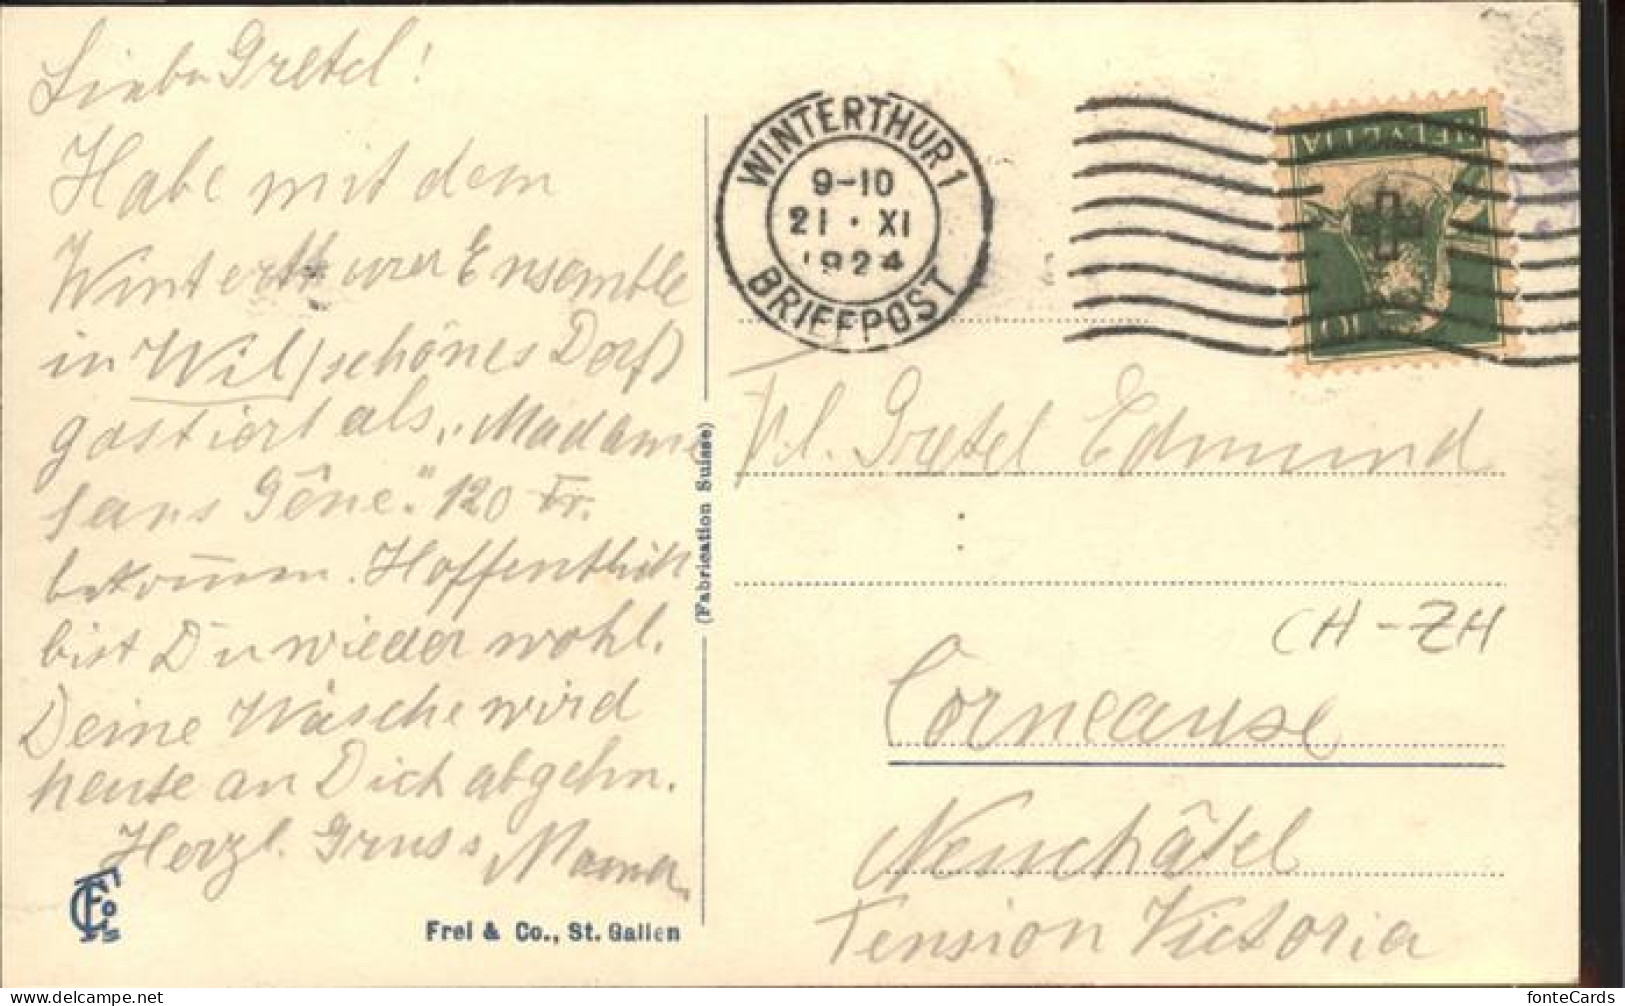 Liebe Gretel!
Habe mit dem
Winterthurer Ensemble
in Wil (schönes Dorf)
gastiert als „Madame
sans Gêne." 120 Fr.
bekom̅en. Hoffentlich
bist Du wieder wohl.
Deine Wäsche wird
heute an Dich abgehn.
Herzl. Gruss Mama.
Frei & Co., St. Gallen
(Fabrication Suisse)
WINTERTHUR 1
9-10
21 · XI
1924
BRIEFPOST
HELVETIA
10
Frl. Gretel Edmund
CH-ZH
Corneause
Neuchâtel
Pension Victoria
fonteCards